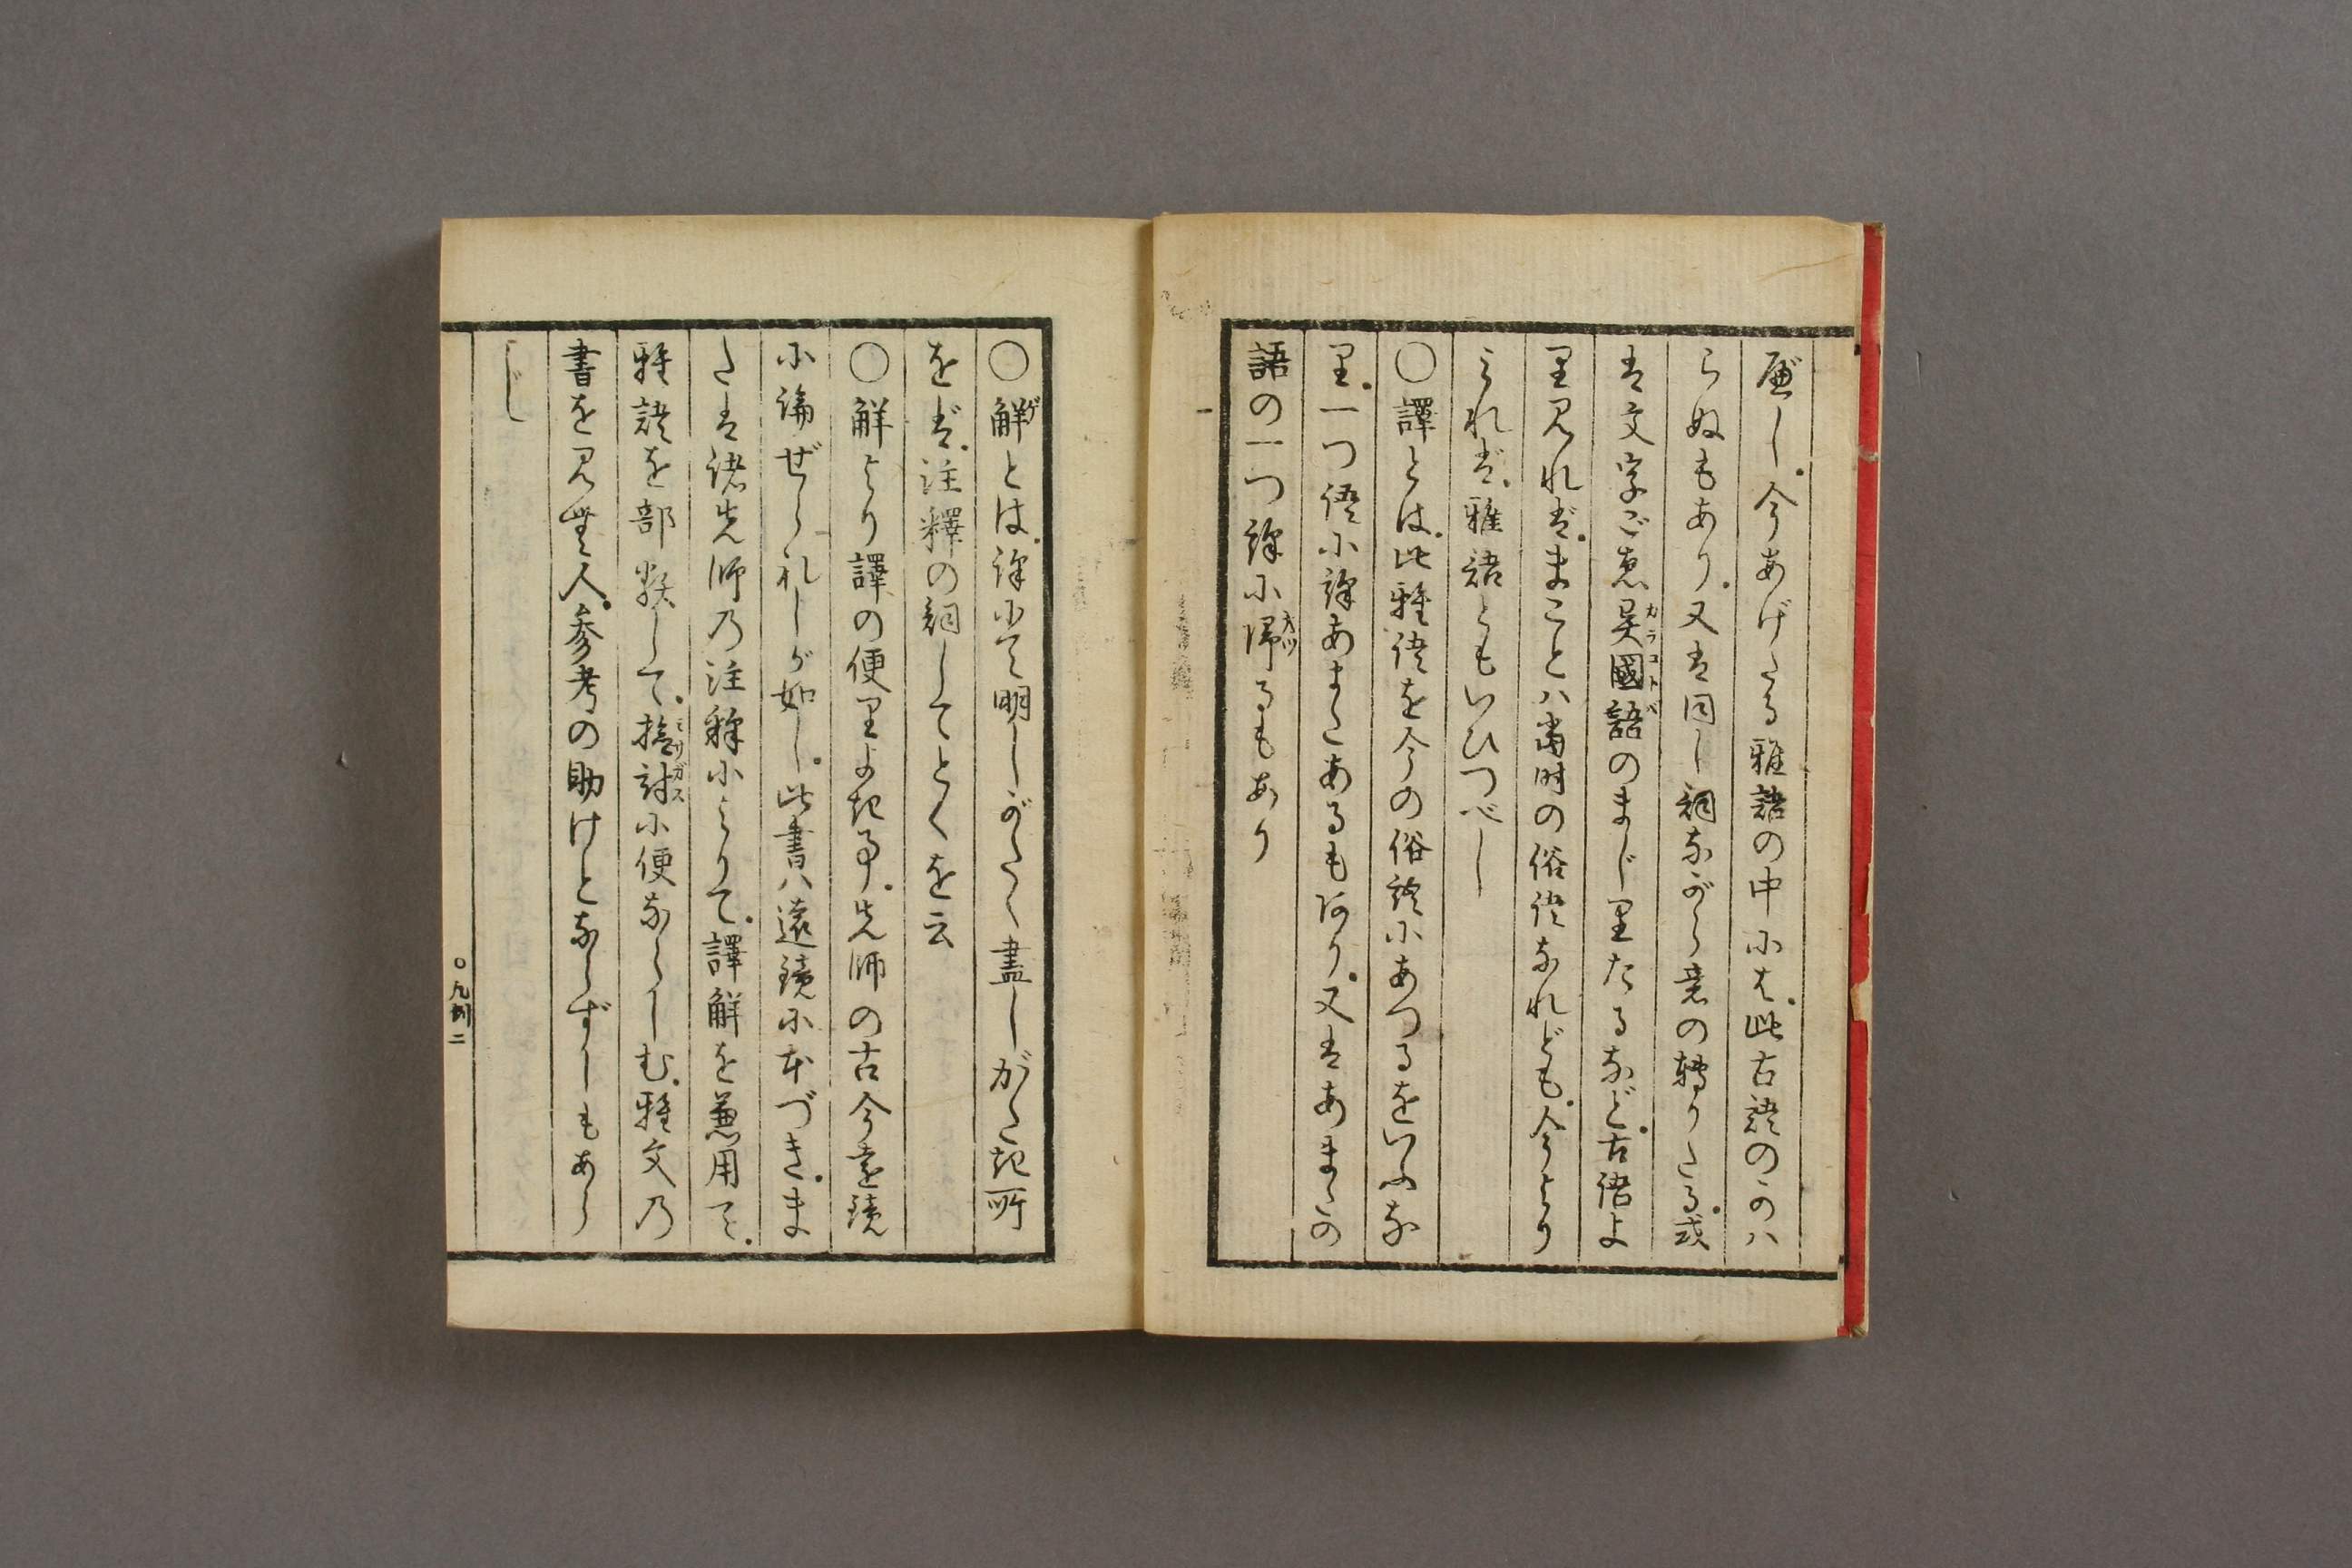 べし今あげたる雅語の中には此古語のかハ
らぬもあり又は同し詞ながら意の轉りたる或
は文字ごゑ異國語カラコトバのまじりたるなど古語よ
り見ればまことハ當時の俗語なれども今より
みれば雅語ともいひつべし
○譯とは此雅語を今の俗語にあつるをいふな
り一つ語に譯あまたあるもあり又はあまたの
語の一つ譯に帰るもあり
○解ゲとは譯にて明しがたく盡しがたき所
をば注釋の詞してとくを云
○解より譯の便りよき事先師の古今遠鏡
に論ぜられしが如し此書ハ遠鏡に本づきま
たは諸先師の注釋によりて譯解を兼用て
雅語を部類して搜討に便ならしむ雅文の
書を見む人參考の助けとならずしもあら
じ
○凡例二